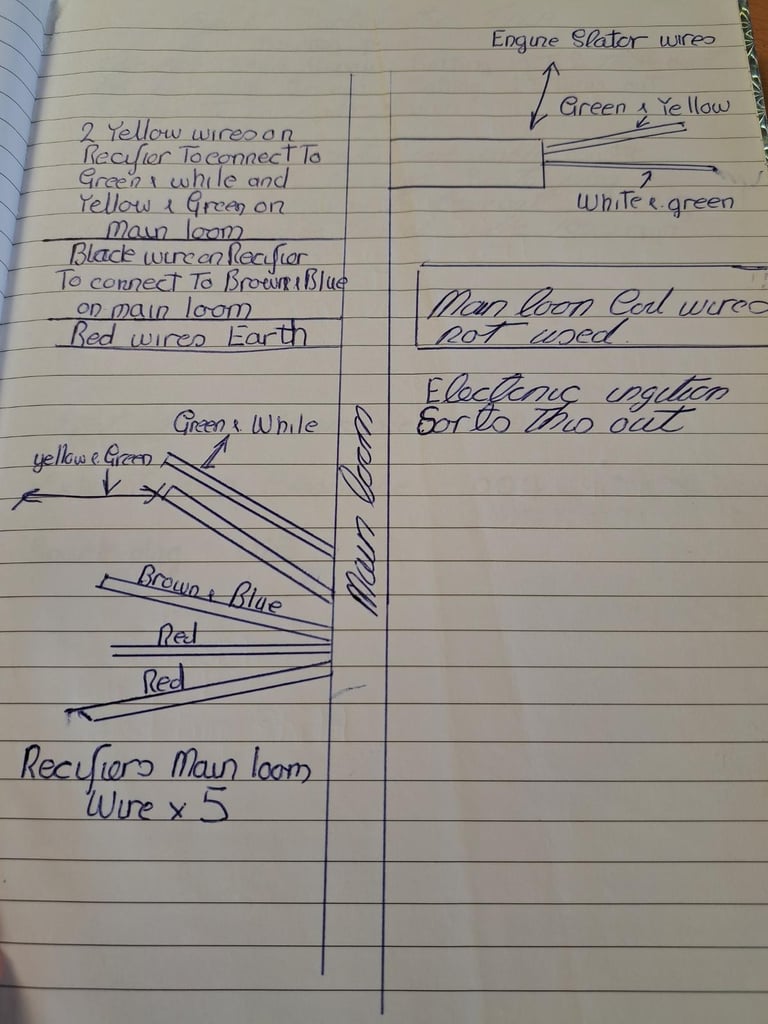 Engine Stator wires
Green & Yellow
White & green
2 Yellow wires on
Recifier To connect To
Green & white and
Yellow & Green on
Main loom
Black wire on Recifior
To connect To Brown & Blue
on main loom
Red wires Earth
Main loon Coil wires
not used.
Electenic ingition
Sorts This out
Green & While
yellow & Green
Brown & Blue
Red
Red
Main loom
Recifiers Main loom
Wire x 5